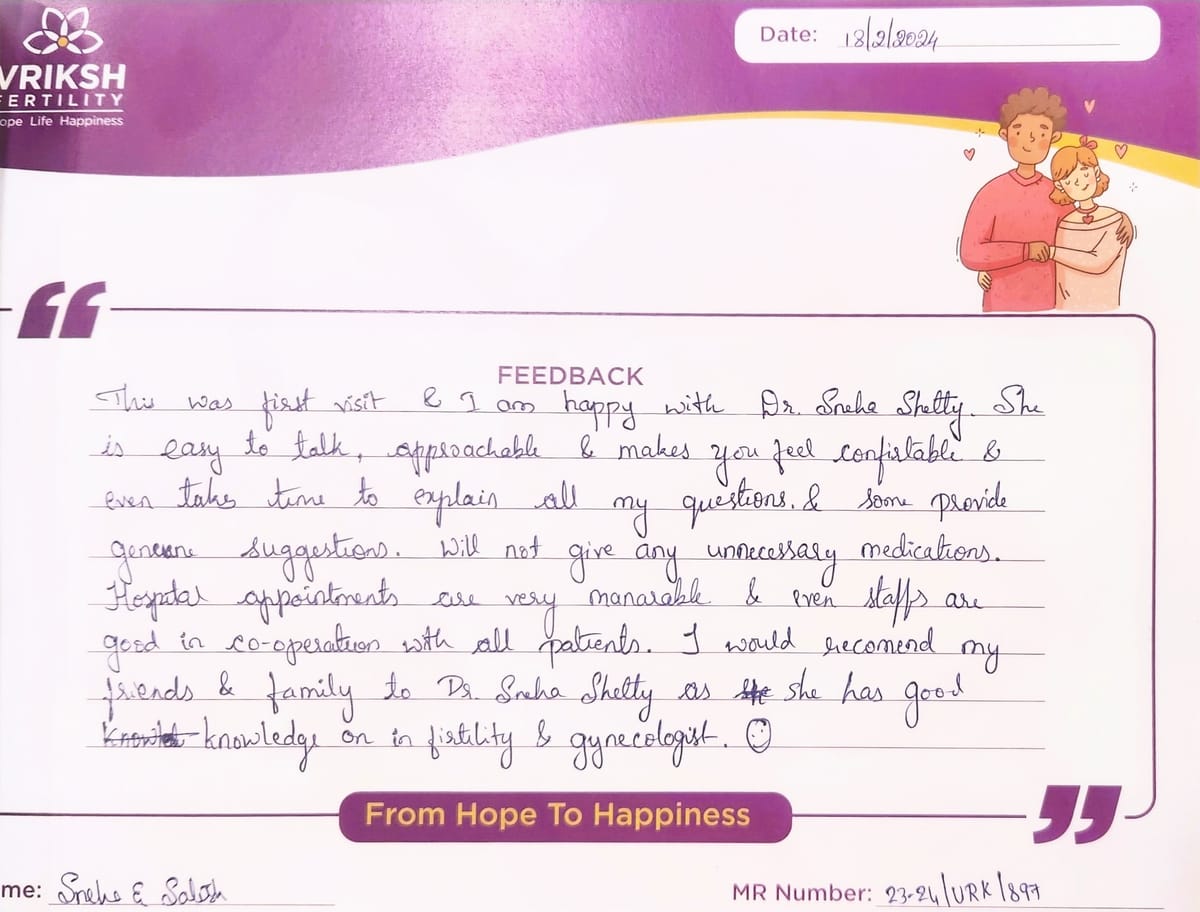 VRIKSH
FERTILITY
ope Life Happiness
Date: 18/2/2024
FEEDBACK
This was first visit & I am happy with Dr. Sneha Shetty. She
is easy to talk, approachable & makes you feel confirtable &
even takes time to explain all my questions. & some provide
genuene suggestions. Will not give any unnecessary medications.
Hospital appointments are very manarable & even staffs are
good in co-operation with all patients. I would recomend my
friends & family to Dr. Sneha Shelty as she has good
knowledge on in firtility & gynecologist.
From Hope To Happiness
me: Sneha & 
MR Number: 23-24/URK/897